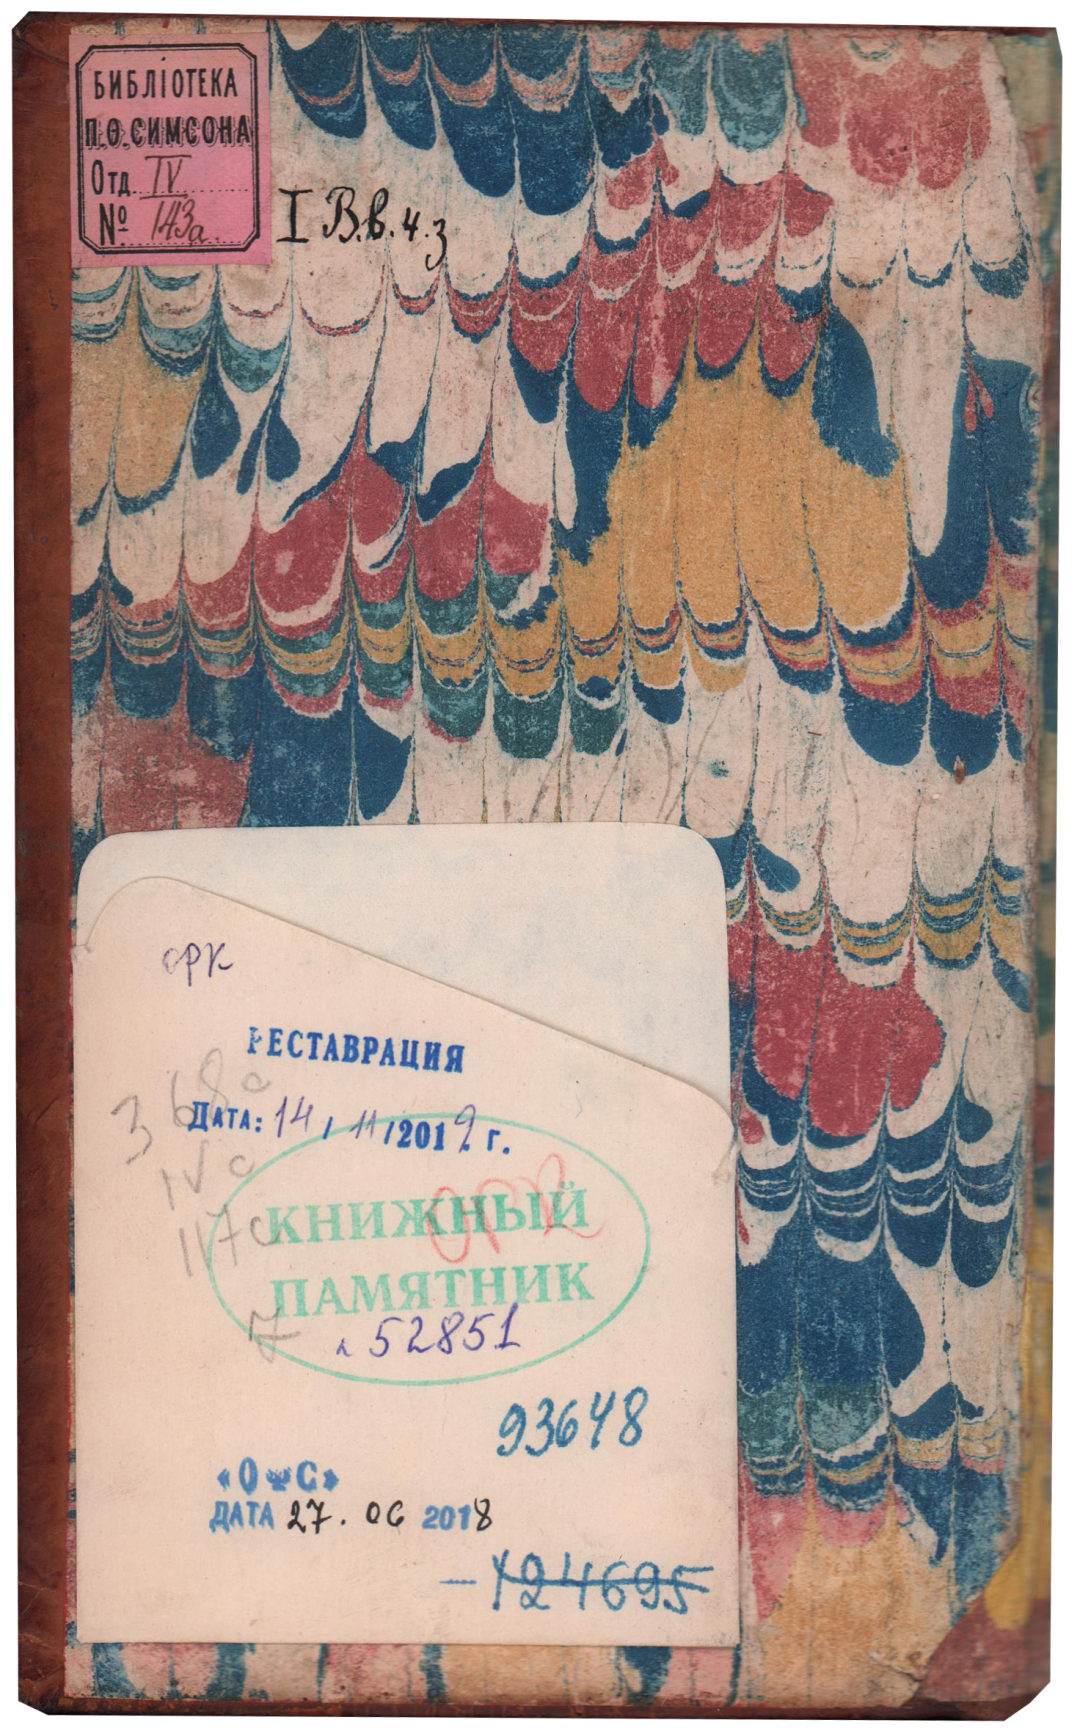 БИБЛІОТЕКА
П.Ѳ.СИМСОНА
Отд. IV
№ 143а.
I В.в.4.3
орк
РЕСТАВРАЦИЯ
ДАТА: 14 / 11 /2012 г.
368с
IVс
117с
КНИЖНЫЙ
ПАМЯТНИК
7
52851
93648
«О С»
ДАТА 27. 06 2018
— 124695